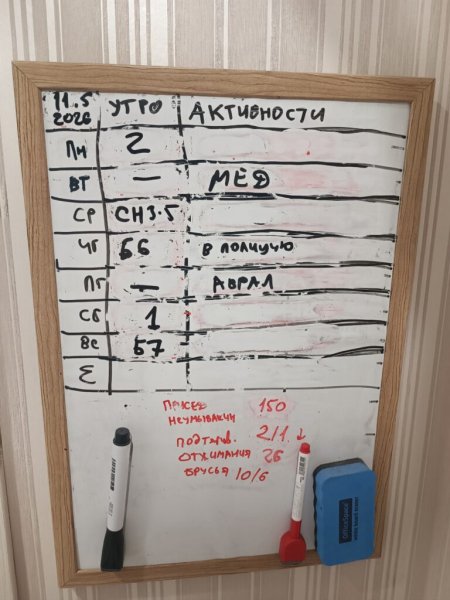 11.5 2026 УТРО АКТИВНОСТИ
ПН 2
ВТ — МЕД
СР СН3.5
ЧГ Б6 В ПОЛИЦИЮ
ПГ — АВРАЛ
СБ 1
ВС Б7
Σ
ПРИСЕД 150
НЕУМЫВАКИ
ПОДТЯГИВ. 2/1 ↓
ОТЖИМАНИЯ 26
БРУСЬЯ 10/6
OfficeSpace